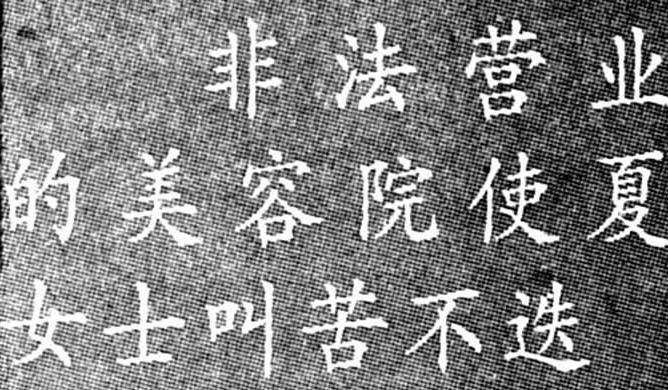 非法营业
的美容院使夏
女士叫苦不迭